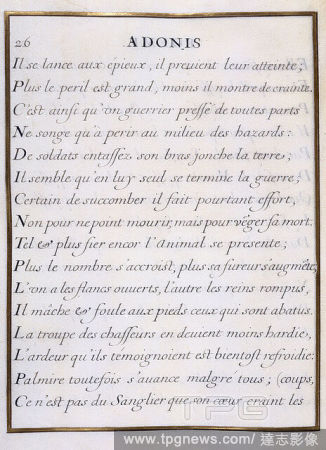 26 ADONIS
Il se lance aux épieux, il preuient leur atteinte;
Plus le peril est grand, moins il montre de crainte.
C'est ainsi qu'vn guerrier pressé de toutes parts
Ne songe qu'à perir au milieu des hazards:
De soldats entassez son bras jonche la terre;
Il semble qu'en luy seul se termine la guerre;
Certain de succomber il fait pourtant effort,
Non pour ne point mourir, mais pour vẽger sa mort.
Tel & plus fier encor l'Animal se presente;
Plus le nombre s'accroist, plus sa fureur s'augmẽte,
L'vn a les flancs ouuerts, l'autre les reins rompus,
Il mâche & foule aux pieds ceux qui sont abatus.
La troupe des chasseurs en deuient moins hardie,
L'ardeur qu'ils temoignoient est bientost refroidie:
Palmire toutefois s'auance malgré tous; (coups,
Ce n'est pas du Sanglier que son cœur craint les
TPG
www.tpgnews.com / 達志影像